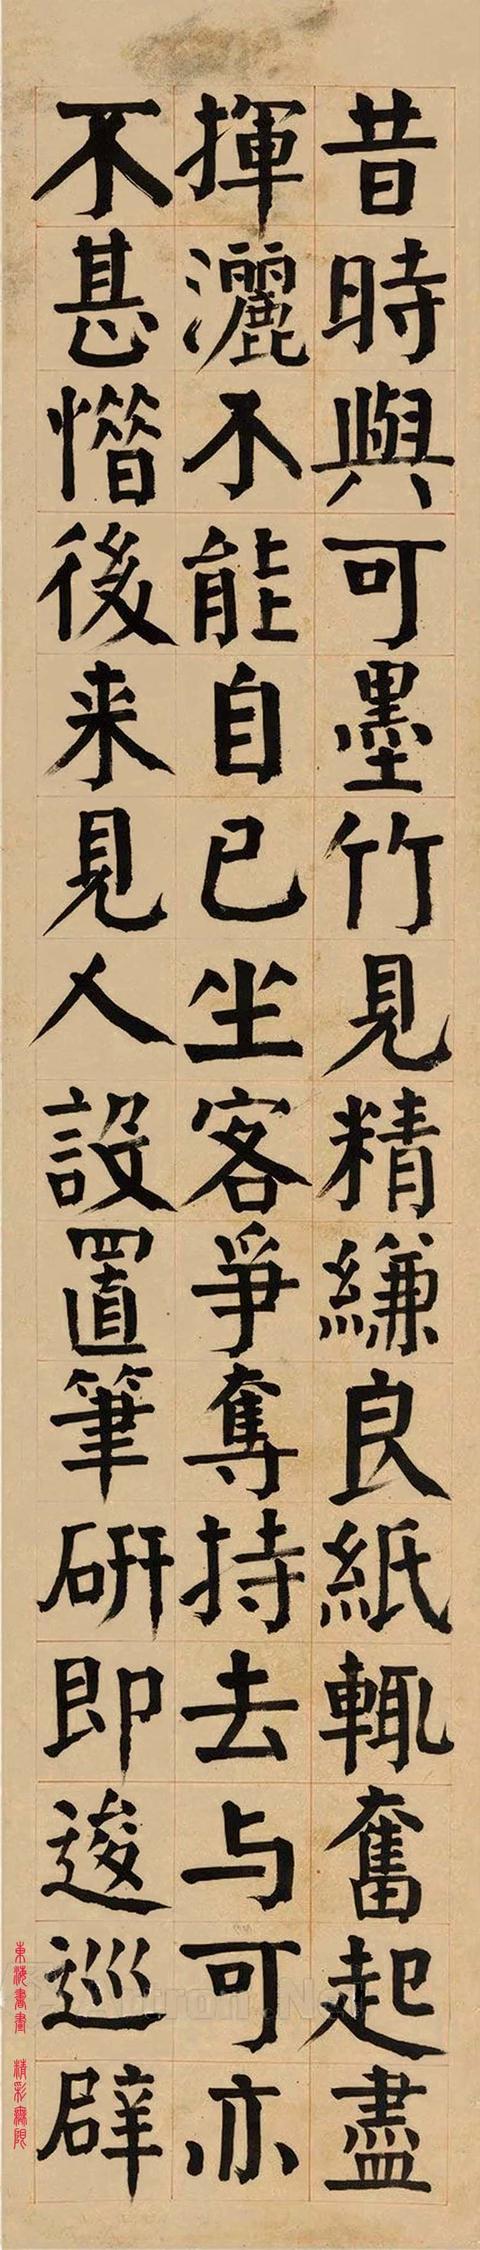 昔時與可墨竹見精縑良紙輒奮起盡
揮灑不能自已坐客爭奪持去与可亦
不甚惜後来見人設置筆研即逡巡辟
東海書畫 精彩無限